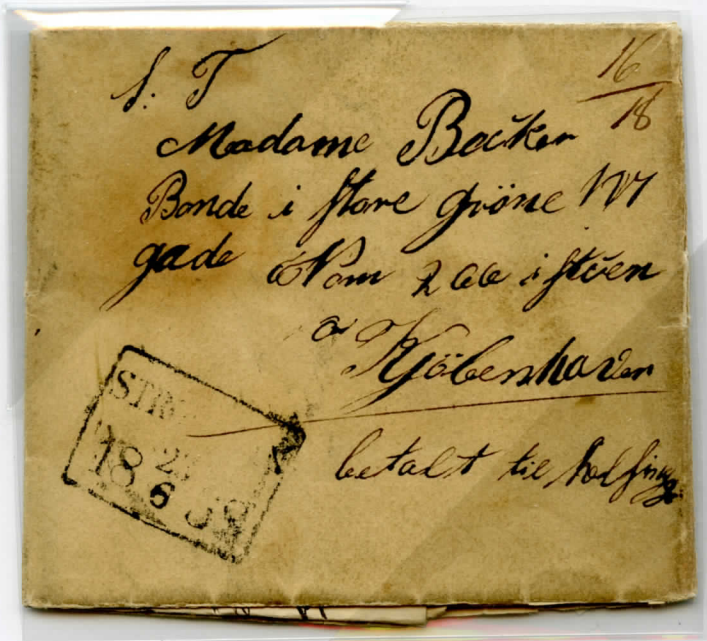 S: T
16
18
Madame Backer
Bonde i store gröne NN
gade No 200 i stuen
a
Kjöbenhaven
betalt til helsing
STR
23
18 6